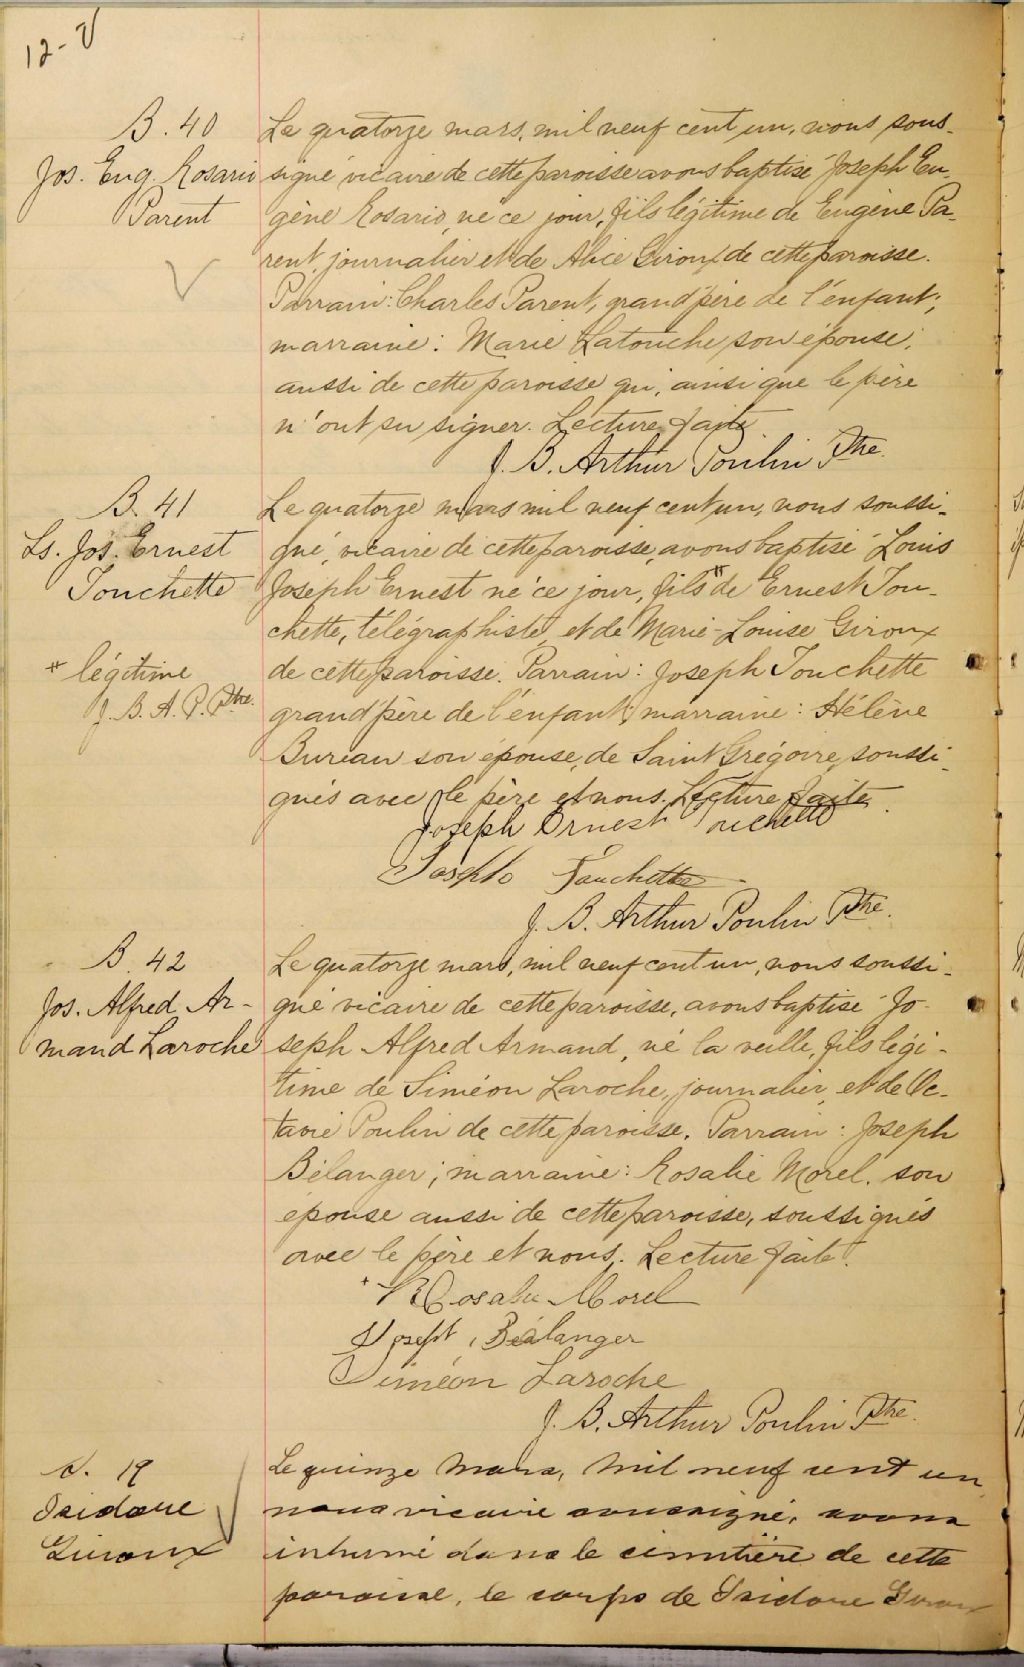 12-V
B. 40
Jos. Eug. Rosario
Parent
Le quatorze mars, mil neuf cent un, nous sous-
signé vicaire de cette paroisse avons baptisé Joseph Eu-
gène Rosario, né ce jour, fils légitime de Eugène Pa-
rent, journalier et de Alice Giroux de cette paroisse.
Parrain: Charles Parent, grand'père de l'enfant;
marraine: Marie Latouche son épouse,
aussi de cette paroisse qui, ainsi que le père
n'ont su signer. Lecture faite.
J. B. Arthur Poulin Ptre.
B. 41
Ls. Jos. Ernest
Touchette
# légitime
J. B. A. P. Ptre.
Le quatorze mars mil neuf cent un, nous soussi-
gné, vicaire de cette paroisse, avons baptisé Louis
Joseph Ernest né ce jour, fils # de Ernest Tou-
chette, télégraphiste, et de Marie-Louise Giroux
de cette paroisse. Parrain: Joseph Touchette
grand'père de l'enfant, marraine: Hélène
Bureau son épouse, de Saint Grégoire, soussi-
gnés avec le père et nous. Lecture faite.
Joseph Ernest Touchette
Joseph Touchette
J. B. Arthur Poulin Ptre.
B. 42
Jos. Alfred Ar-
mand Laroche
Le quatorze mars, mil neuf cent un, nous soussi-
gné vicaire de cette paroisse, avons baptisé Jo-
seph Alfred Armand, né la veille, fils légi-
time de Siméon Laroche, journalier, et de Oc-
tavie Poulin de cette paroisse. Parrain: Joseph
Bélanger; marraine: Rosalie Morel, son
épouse aussi de cette paroisse, soussignés
avec le père et nous. Lecture faite.
Rosalie Morel
Joseph Bélanger
Siméon Laroche
J. B. Arthur Poulin Ptre.
S. 19
Isidore
Giroux
Le quinze mars, mil neuf cent un
nous vicaire soussigné, avons
inhumé dans le cimetière de cette
paroisse, le corps de Isidore Giroux